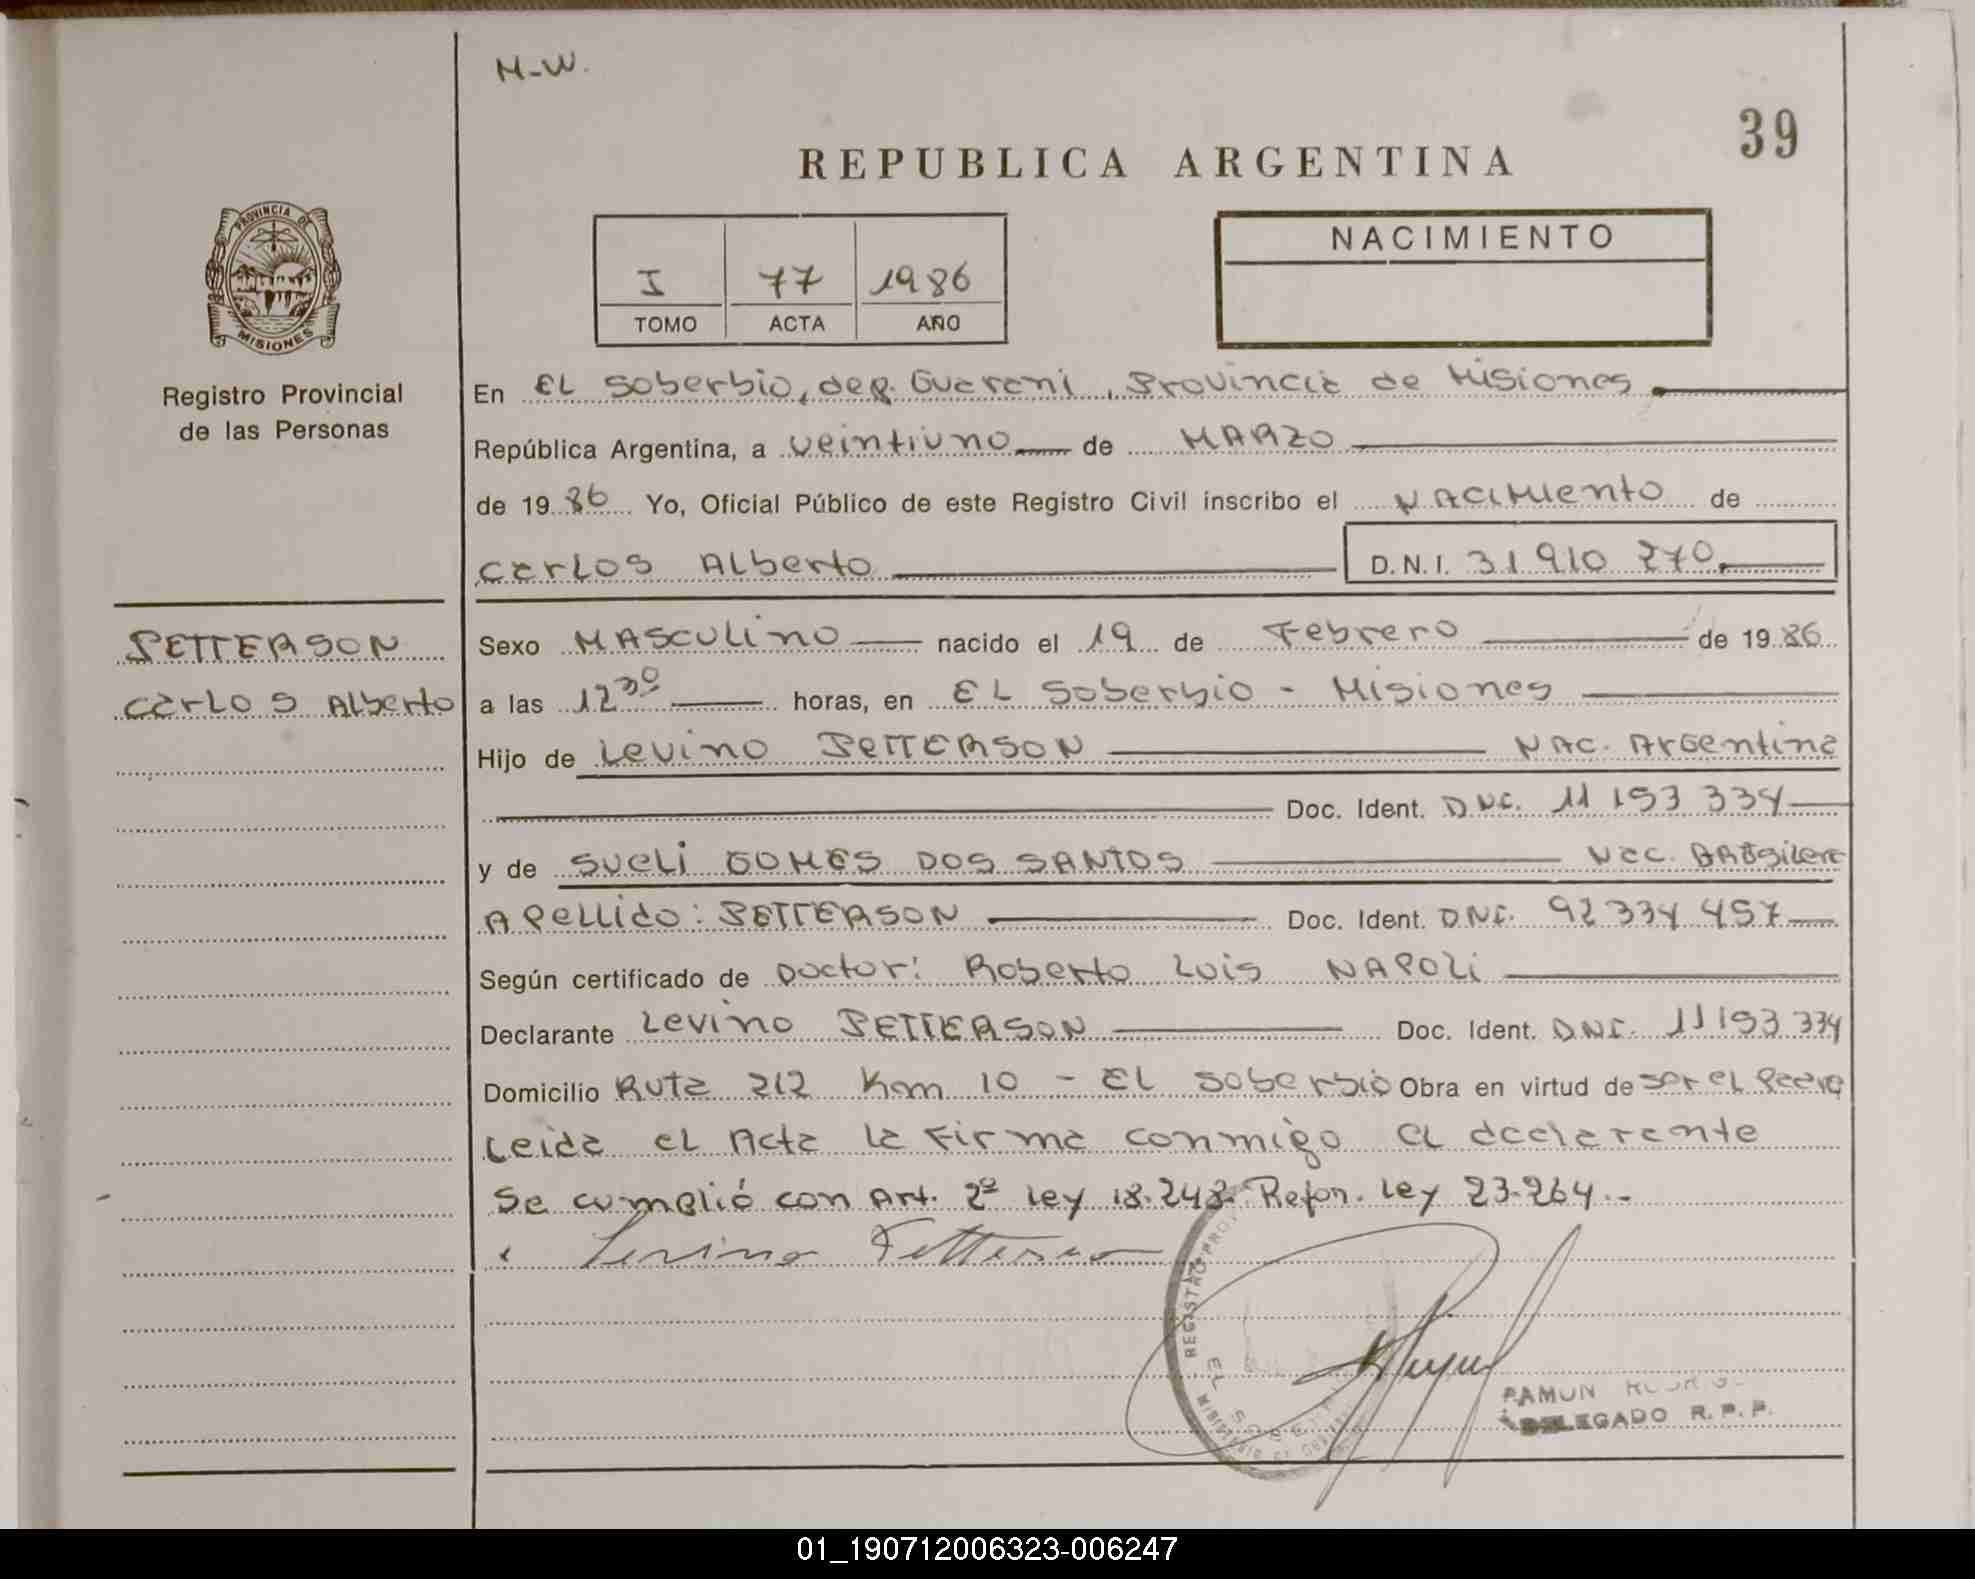 M-W.
39
REPUBLICA ARGENTINA
PROVINCIA DE
MISIONES
I 77 1986
TOMO ACTA AÑO
NACIMIENTO
Registro Provincial
de las Personas
En EL Soberbio, dep. Guarani, Provincia de Misiones
República Argentina, a veintiuno de MARZO
de 1986 Yo, Oficial Público de este Registro Civil inscribo el NACIMIENTO de
Carlos Alberto D.N.I. 31 910 270
PETTERSON
Carlos Alberto
Sexo MASCULINO nacido el 19 de Febrero de 1986
a las 12 30 horas, en EL Soberbio - Misiones
Hijo de Levino PETTERSON NAC. Argentina
Doc. Ident. DNI. 11 193 334
y de SUELI GOMES DOS SANTOS Nac. BRASilera
Apellido: PETTERSON Doc. Ident. DNI. 92 334 457
Según certificado de Doctor: Roberto Luis NAPOLi
Declarante Levino PETTERSON Doc. Ident. DNI. 11 193 334
Domicilio Ruta 212 Km 10 - EL Soberbio Obra en virtud de ser el Padre
Leida el Acta la Firma conmigo el declarante
Se cumplió con Art. 2º Ley 18.248 Refor. Ley 23.264.-
Levino Petterson
REGISTRO PROV
EL SOBERBIO
RAMON
DELEGADO R. P. P.
01_190712006323-006247